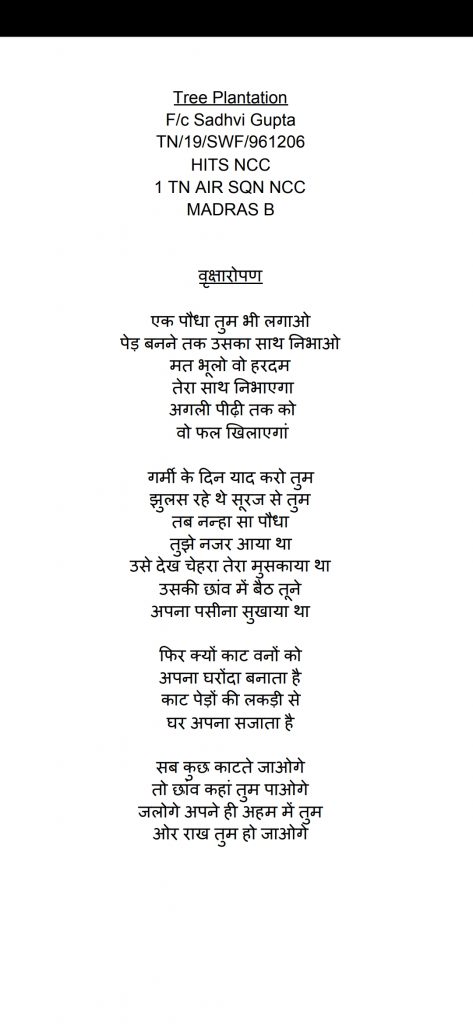 Tree Plantation
F/c Sadhvi Gupta
TN/19/SWF/961206
HITS NCC
1 TN AIR SQN NCC
MADRAS B
वृक्षारोपण
एक पौधा तुम भी लगाओ
पेड़ बनने तक उसका साथ निभाओ
मत भूलो वो हरदम
तेरा साथ निभाएगा
अगली पीढ़ी तक को
वो फल खिलाएगां
गर्मी के दिन याद करो तुम
झुलस रहे थे सूरज से तुम
तब नन्हा सा पौधा
तुझे नजर आया था
उसे देख चेहरा तेरा मुसकाया था
उसकी छांव में बैठ तूने
अपना पसीना सुखाया था
फिर क्यों काट वनों को
अपना घरोंदा बनाता है
काट पेड़ों की लकड़ी से
घर अपना सजाता है
सब कुछ काटते जाओगे
तो छांव कहां तुम पाओगे
जलोगे अपने ही अहम में तुम
ओर राख तुम हो जाओगे